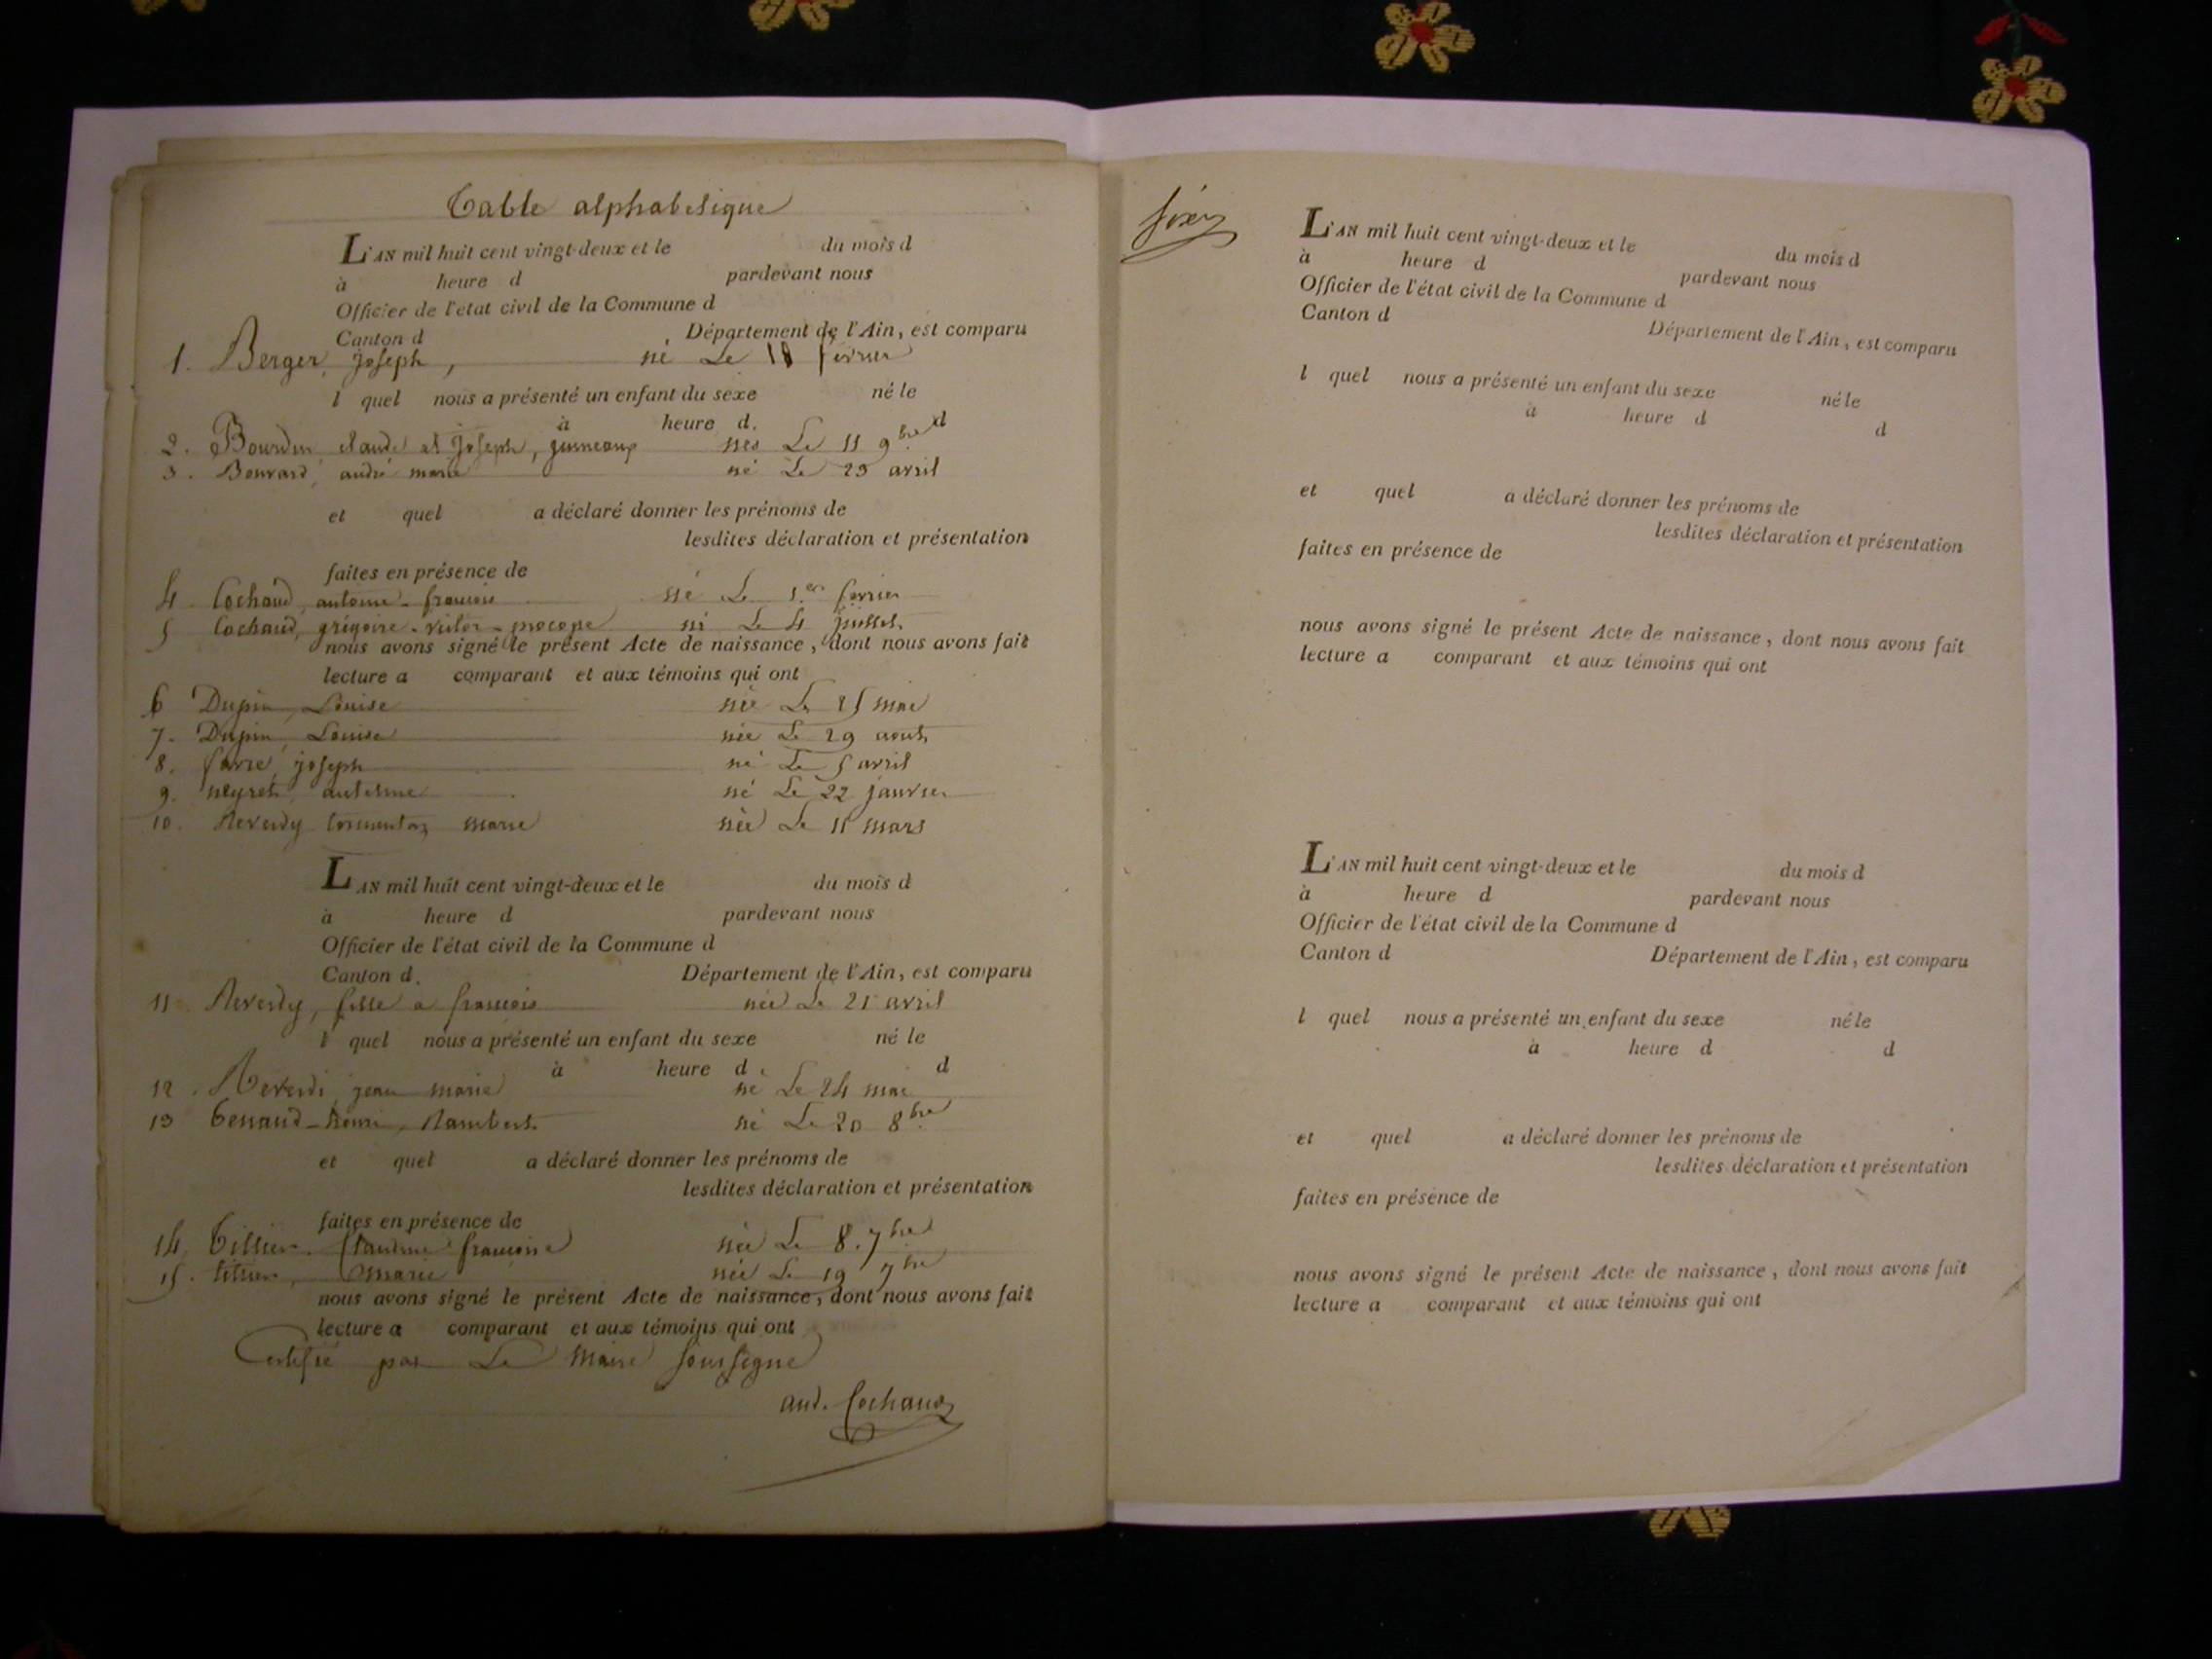 Table alphabétique
L'AN mil huit cent vingt-deux et le du mois d
à heure d pardevant nous
Officier de l'état civil de la Commune d
Canton d Département de l'Ain, est comparu
1. Berger, joseph, né Le 18 février
l quel nous a présenté un enfant du sexe né le
à heure d. d
2. Bourdin claude et Joseph, jumeaux nés Le 11 9bre
3. Bouvard, andré marie né Le 23 avril
et quel a déclaré donner les prénoms de
lesdites déclaration et présentation
faites en présence de
4. Cochaud, antoine-françois né Le 1.er février
5 Cochaud, grégoire-victor-procope né Le 4 juillet.
nous avons signé le présent Acte de naissance, dont nous avons fait
lecture a comparant et aux témoins qui ont
6 Dupin, Louise née Le 25 mai
7. Dupin, Louise née Le 29 aout
8. favre, joseph né Le 5 avril
9. neyret, antelme né Le 22 janvier
10. Reverdy marie née Le 11 mars
L'AN mil huit cent vingt-deux et le du mois d
à heure d pardevant nous
Officier de l'état civil de la Commune d
Canton d. Département de l'Ain, est comparu
11. Reverdy, fille a françois née Le 21 avril
l quel nous a présenté un enfant du sexe né le
à heure d. d
12. Reverdi jean marie né Le 24 mai
13 tenand-henri, Rambert né Le 20 8bre
et quel a déclaré donner les prénoms de
lesdites déclaration et présentation
faites en présence de
14. Tissier. Claudine françoise née Le 8. 7bre
15. tissier, Marie née Le 19 7bre
nous avons signé le présent Acte de naissance, dont nous avons fait
lecture a comparant et aux témoins qui ont
Certifié par Le Maire soussigné
and. Cochaud
sixer
L'AN mil huit cent vingt-deux et le du mois d
à heure d pardevant nous
Officier de l'état civil de la Commune d
Canton d Département de l'Ain, est comparu
l quel nous a présenté un enfant du sexe né le
à heure d d
et quel a déclaré donner les prénoms de
lesdites déclaration et présentation
faites en présence de
nous avons signé le présent Acte de naissance, dont nous avons fait
lecture a comparant et aux témoins qui ont
L'AN mil huit cent vingt-deux et le du mois d
à heure d pardevant nous
Officier de l'état civil de la Commune d
Canton d Département de l'Ain, est comparu
l quel nous a présenté un enfant du sexe né le
à heure d d
et quel a déclaré donner les prénoms de
lesdites déclaration et présentation
faites en présence de
nous avons signé le présent Acte de naissance, dont nous avons fait
lecture a comparant et aux témoins qui ont